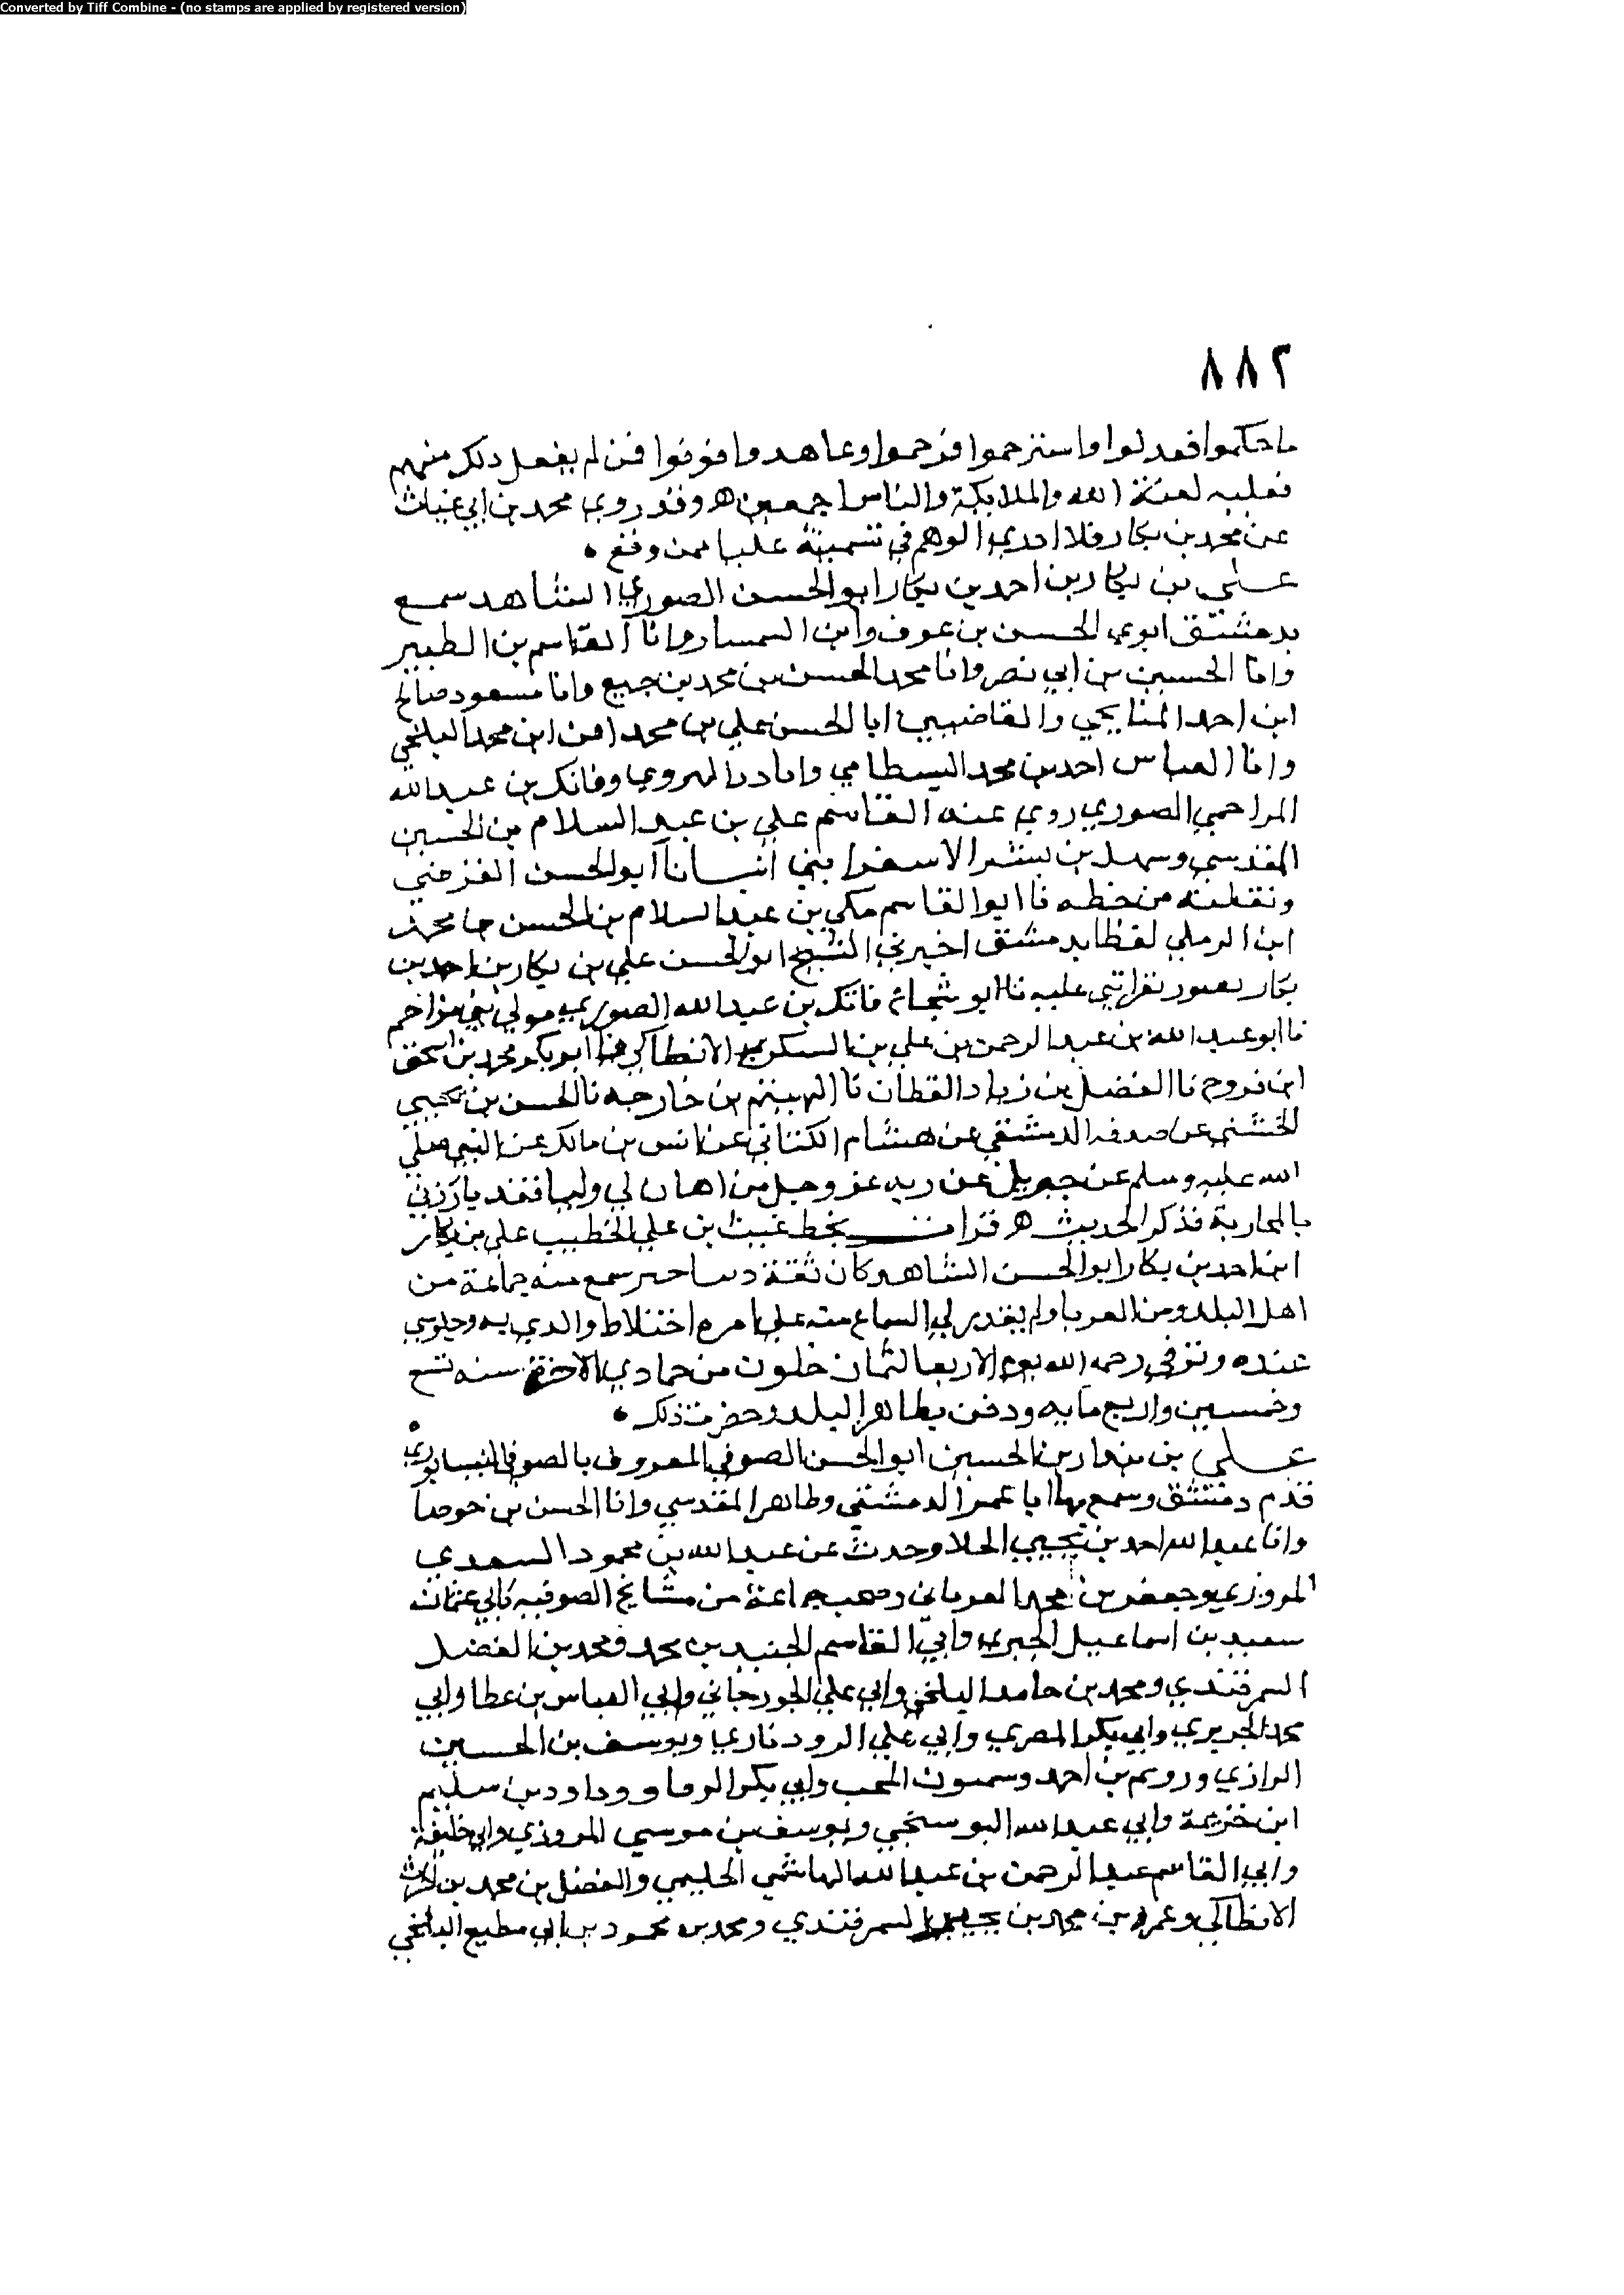 Converted by Tiff Combine - (no stamps are applied by registered version)
٨٨٢
ما حكموا فعدلوا واسترحموا فرحموا وعاهدوا فوفوا فمن لم يفعل ذلك منهم
فعليه لعنة الله والملايكة والناس اجمعين ه وقد روي محمد بن ابي غياث
عن محمد بن بكار فلا ادري الوهم في تسمية عليا ممن وقع
علي بن بكار بن احمد بن بكار ابو الحسن الصوري الشاهد سمع
بدمشق ابوي الحسن بن عوف وابن السمسار وابا القاسم بن الطبيز
وابا الحسين بن ابي نصر وابا محمد الحسن بن محمد بن جميع وابا مسعود صالح
ابن احمد الميانجي والقاضيين ابا الحسن علي بن محمد ابن محمد البلخي
وابا العباس احمد بن محمد البسطامي وابا ذر الهروي وفاتك بن عبد الله
المزاحمي الصوري روي عنه القاسم علي بن عبد السلام بن الحسين
المقدسي وسهل بن بشر الاسفرايني انبانا ابو الحسن الفرضي
ونقلته من خطه نا ابو القاسم مكي بن عبد السلام بن الحسن
ابن الرملي لفظا بدمشق اخبرني الشيخ ابو الحسن علي بن بكار بن احمد بن
بكار بصور بقراتي عليه نا ابو شجاع فاتك بن عبد الله الصوري مولي بني مزاحم
نا ابو عبد الله بن عبد الرحمن بن علي بن السكري الانطاكي نا ابو بكر محمد بن اسحق
ابن فروح نا الفضل بن زياد القطان نا الهيثم بن خارجه نا الحسن بن يحيي
الخشني عن صدقه الدمشقي عن هشام الكتاني عن انس بن مالك عن النبي صلي
الله عليه وسلم عن جبريل عن ربه عز وجل من اهان لي وليا فقد بارزني
بالمحاربة فذكر الحديث ه قرات بخط غيث بن علي الخطيب علي بن بكار
ابن احمد بن بكار ابو الحسن الشاهد كان ثقة سمع منه جماعة من
اهل البلد ومن الغربا ولم يقدر لي السماع منه علي اختلاط والدي به وجلوسي
عنده وتوفي رحمه الله يوم الاربعا لثمان خلون من جمادي الاخرة سنه تسع
وخمسين واربع مايه ودفن بظاهر البلد وحضرت ذلك
علي بن بندار بن الحسين ابو الحسن الصوفي المعروف بالصوفي النيسابوري
قدم دمشق وسمع بها ابا عمر الدمشقي وطاهر المقدسي وابا الحسن بن حوصا
وابا عبد الله احمد بن يحيي الجلا وحدث عن عبد الله بن محمود السعدي
المروزي وجعفر بن محمد الفريابي وصحب جماعة من مشايخ الصوفيه كابي عثمان
سعيد بن اسماعيل الحيري وابي القاسم الجنيد بن محمد ومحمد بن الفضل
السمرقندي ومحمد بن حامد البلخي وابي علي الجورجاني وابي العباس بن عطا وابي
محمد الجريري وابي بكر المصري وابي علي الروذباري ويوسف بن الحسين
الرازي ورويم بن احمد وسمنون المحب وابي بكر وداود بن سليم
ابن خزيمة وابي عبد الله البوسنجي ويوسف بن موسي المروزي وابي خليفة
وابي القاسم عبد الرحمن بن عبد الله الهاشمي الحليمي والفضل بن محمد بن
الانطاكي وعمر بن محمد بن يحيي السمرقندي ومحمد بن محمود بن ابي مطيع البلخي